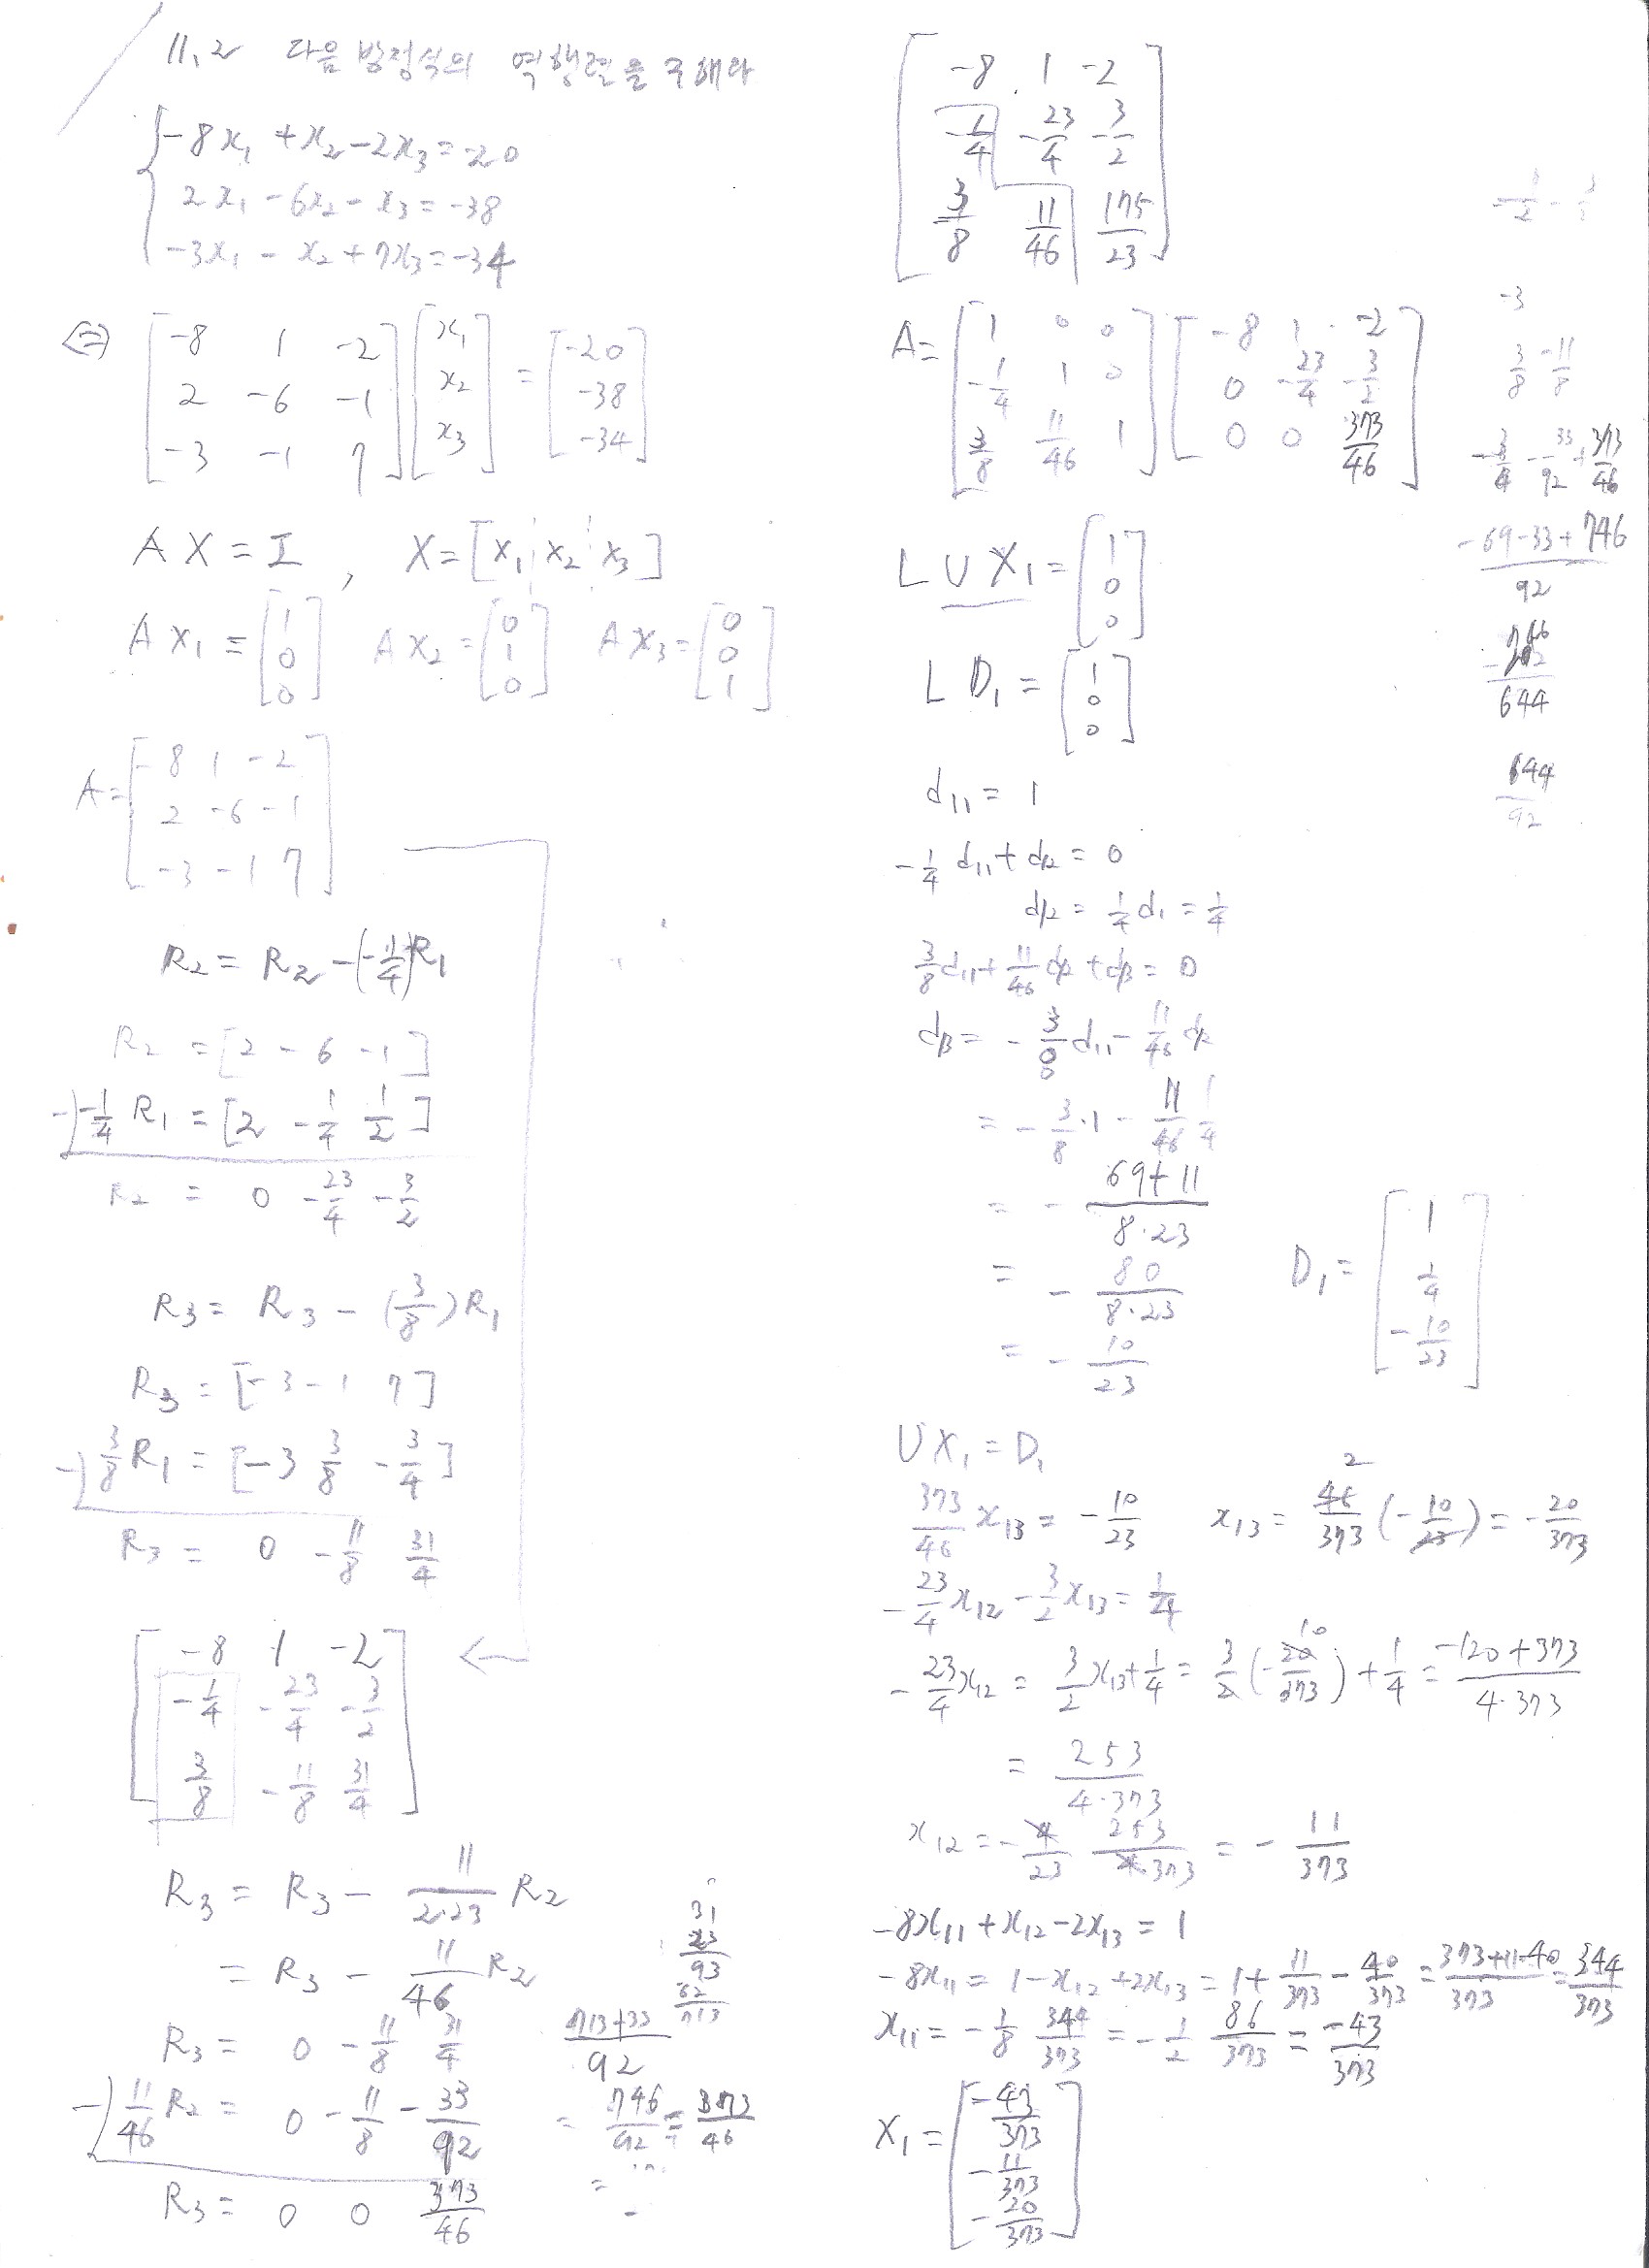 11.2 다음 방정식의 역행렬을 구해라
-8x₁ + x₂ - 2x₃ = -20
2x₁ - 6x₂ - x₃ = -38
-3x₁ - x₂ + 7x₃ = -34
[-8 1 -2] [x₁] = [-20]
[2 -6 -1] [x₂] [-38]
[-3 -1 7] [x₃] [-34]
AX = I , X = [x₁ x₂ x₃]
AX₁ = [1 0 0] AX₂ = [0 1 0] AX₃ = [0 0 1]
A = [-8 1 -2]
[2 -6 -1]
[-3 -1 7]
R₂ = R₂ - (-1/4)R₁
R₂ = [2 -6 -1]
-) -1/4 R₁ = [2 -1/4 1/2]
R₂ = 0 -23/4 -3/2
R₃ = R₃ - (3/8)R₁
R₃ = [-3 -1 7]
-) 3/8 R₁ = [-3 3/8 -3/4]
R₃ = 0 -11/8 31/4
[-8 1 -2]
[-1/4 -23/4 -3/2]
[3/8 -11/8 31/4]
R₃ = R₃ - 11/2·23 R₂
= R₃ - 11/46 R₂
R₃ = 0 -11/8 31/4
-) 11/46 R₂ = 0 -11/8 -33/92
R₃ = 0 0 373/46
31
23
93
62
713
713+33/92
= 746/92 = 373/46
[-8 1 -2]
[-1/4 -23/4 -3/2]
[3/8 11/46 175/23]
A = [1 0 0] [-8 1 -2]
[-1/4 1 0] [0 -23/4 -3/2]
[3/8 11/46 1] [0 0 373/46]
LUX₁ = [1 0 0]
LD₁ = [1 0 0]
d₁₁ = 1
-1/4 d₁₁ + d₁₂ = 0
d₁₂ = 1/4 d₁ = 1/4
3/8 d₁₁ + 11/46 d₁₂ + d₁₃ = 0
d₁₃ = -3/8 d₁₁ - 11/46 d₁₂
= -3/8·1 - 11/46 1/4
= - 69+11/8·23
= - 80/8·23
= - 10/23
D₁ = [1 1/4 -10/23]
UX₁ = D₁
373/46 x₁₃ = -10/23 x₁₃ = 46/373 (-10/23) = -20/373
-23/4 x₁₂ - 3/2 x₁₃ = 1/4
-23/4 x₁₂ = 3/2 x₁₃ + 1/4 = 3/2 (-20/373) + 1/4 = -120+373/4·373
= 253/4·373
x₁₂ = -4/23 253/4·373 = -11/373
-8x₁₁ + x₁₂ - 2x₁₃ = 1
-8x₁₁ = 1 - x₁₂ + 2x₁₃ = 1 + 11/373 - 40/373 = 373+11-40/373 = 344/373
x₁₁ = -1/8 344/373 = -1/2 86/373 = -43/373
X₁ = [-43/373 -11/373 -20/373]
-3
3/8 -11/8
-3/4 -33/92 + 373/46
-69-33+746/92
644
644/92